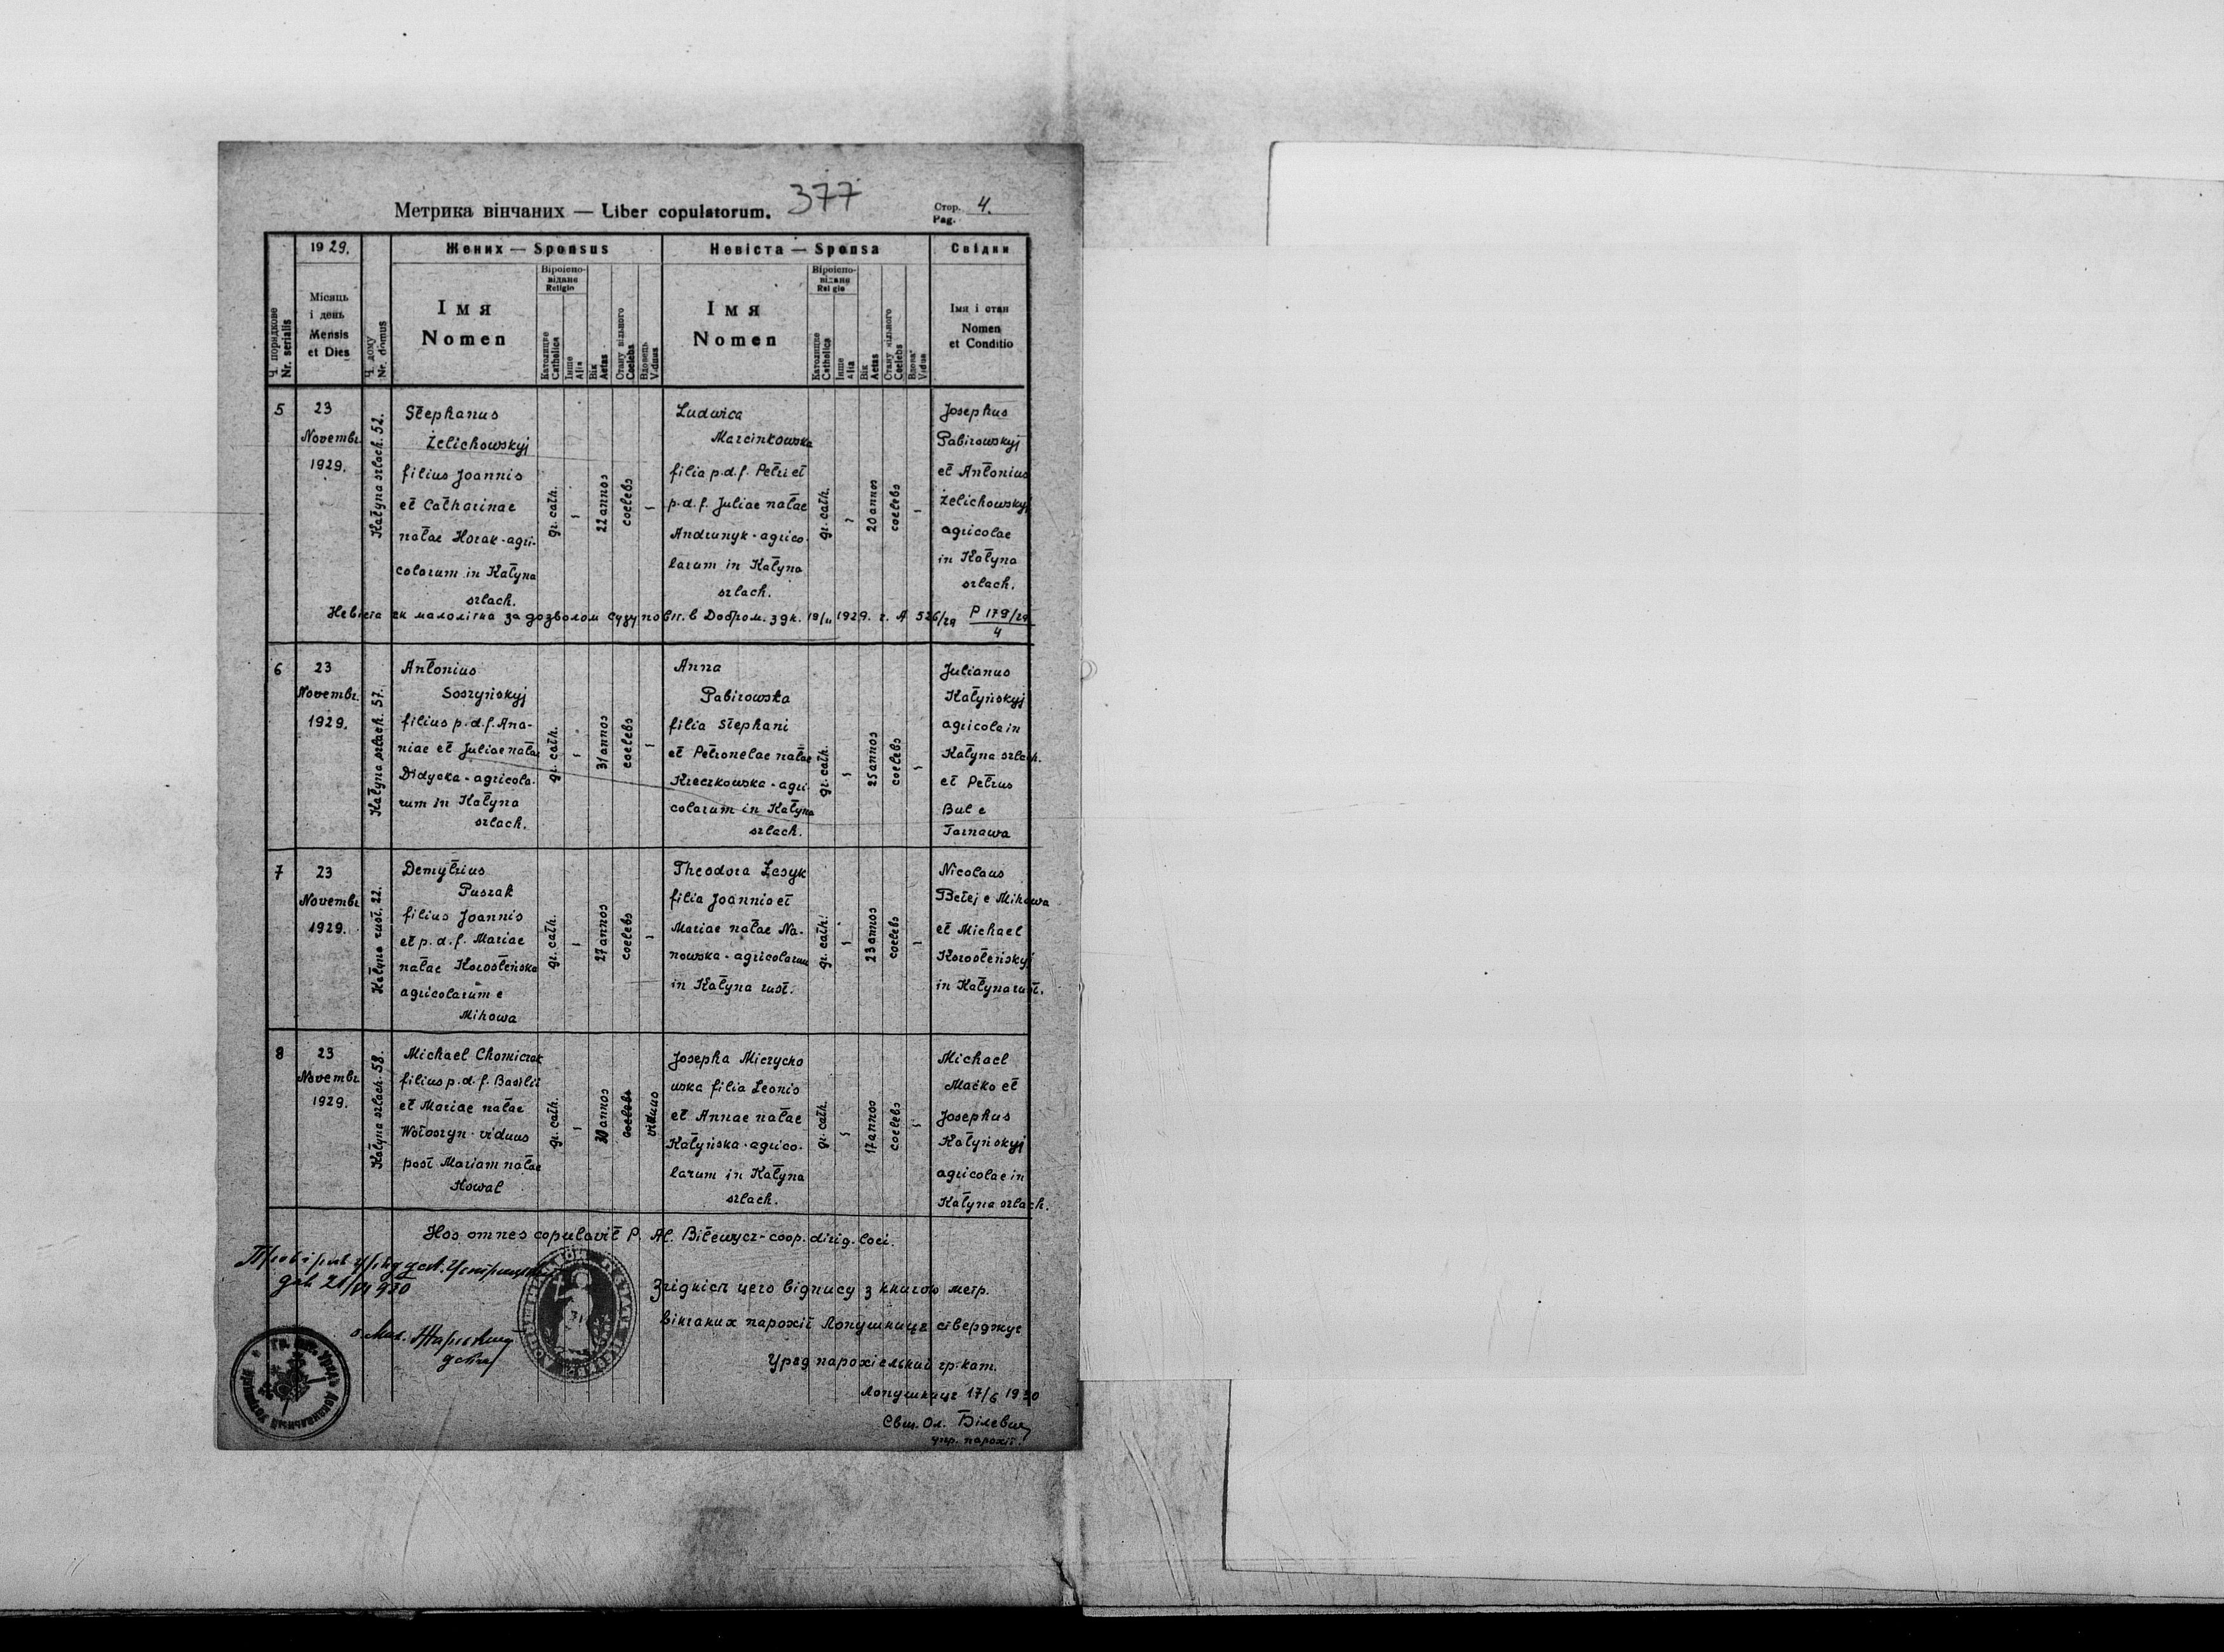 377
Метрика вінчаних — Liber copulatorum.
Стор. 4.
Pag.
Ч. порядкове
Nr. serialis
1929.
Місяць
і день
Mensis
et Dies
Ч. дому
Nr. domus
Жених — Sponsus
Імя
Nomen
Віроіспо-
відане
Religio
Католицке
Catholica
Інше
Alia
Вік
Aetas
Стану вільного
Coelebs
Вдовець
Viduus
Невіста — Sponsa
Імя
Nomen
Віроіспо-
відане
Religio
Католицке
Catholica
Інше
Alia
Вік
Aetas
Стану вільного
Coelebs
Вдова
Vidua
Свідки
Імя і стан
Nomen
et Conditio
5
23
Novembr.
1929.
Kałyna szlach. 52.
Stephanus
Żelichowskyj
filius Joannis
et Catharinae
natae Horak - agri-
colarum in Kałyna
szlach.
gr. cath.
22 annos
coelebs
Ludwica
Marcinkowska
filia p.d.f. Petri et
p.d.f. Juliae natae
Andrunyk - agrico-
larum in Kałyna
szlach.
gr. cath.
20 annos
coelebs
Josephus
Pabirowskyj
et Antonius
Żelichowskyj
agricolae
in Kałyna
szlach.
Невіста як малолітна за дозволом суду повіт. в Добром. з дн. 19/11 1929. г. A 526/29 P 179/29
4
6
23
Novembr.
1929.
Kałyna szlach. 57.
Antonius
Soszyńskyj
filius p.d.f. Ana-
niae et Juliae natae
Didycka - agricola-
rum in Kałyna
szlach.
gr. cath.
31 annos
coelebs
Anna
Pabirowska
filia Stephani
et Petronelae natae
Kreczkowska - agri-
colarum in Kałyna
szlach.
gr. cath.
25 annos
coelebs
Julianus
Kałyńskyj
agricola in
Kałyna szlach.
et Petrus
Bul e
Tarnawa
7
23
Novembr.
1929.
Kałyna rust. 22.
Demytrius
Puszak
filius Joannis
et p.d.f. Mariae
natae Korosteńska
agricolarum e
Mihowa
gr. cath.
27 annos
coelebs
Theodora Lesyk
filia Joannis et
Mariae natae Na-
nowska - agricolarum
in Kałyna rust.
gr. cath.
23 annos
coelebs
Nicolaus
Betej e Mihowa
et Michael
Korosteńskyj
in Kałyna rust.
8
23
Novembr.
1929.
Kałyna szlach. 58.
Michael Chomiczak
filius p.d.f. Basilii
et Mariae natae
Wołoszyn - viduus
post Mariam natae
Kowal
gr. cath.
30 annos
coelebs
viduus
Josepha Miczycho
wska filia Leonis
et Annae natae
Kałyńska - agrico-
larum in Kałyna
szlach.
gr. cath.
17 annos
coelebs
Michael
Maćko et
Josephus
Kałyńskyj
agricolae in
Kałyna szlach.
Hos omnes copulavit P. Al. Biłewycz - coop. dirig. loci.
дня 21/VI 930
Згідність цего відпису з книгою метр.
вінчаних парохії Лопушниця стверджує
Уряд парохіяльний гр. кат.
Лопушниця 17/6 1930
Свщ. Ол. Білевич
упр. парохії.